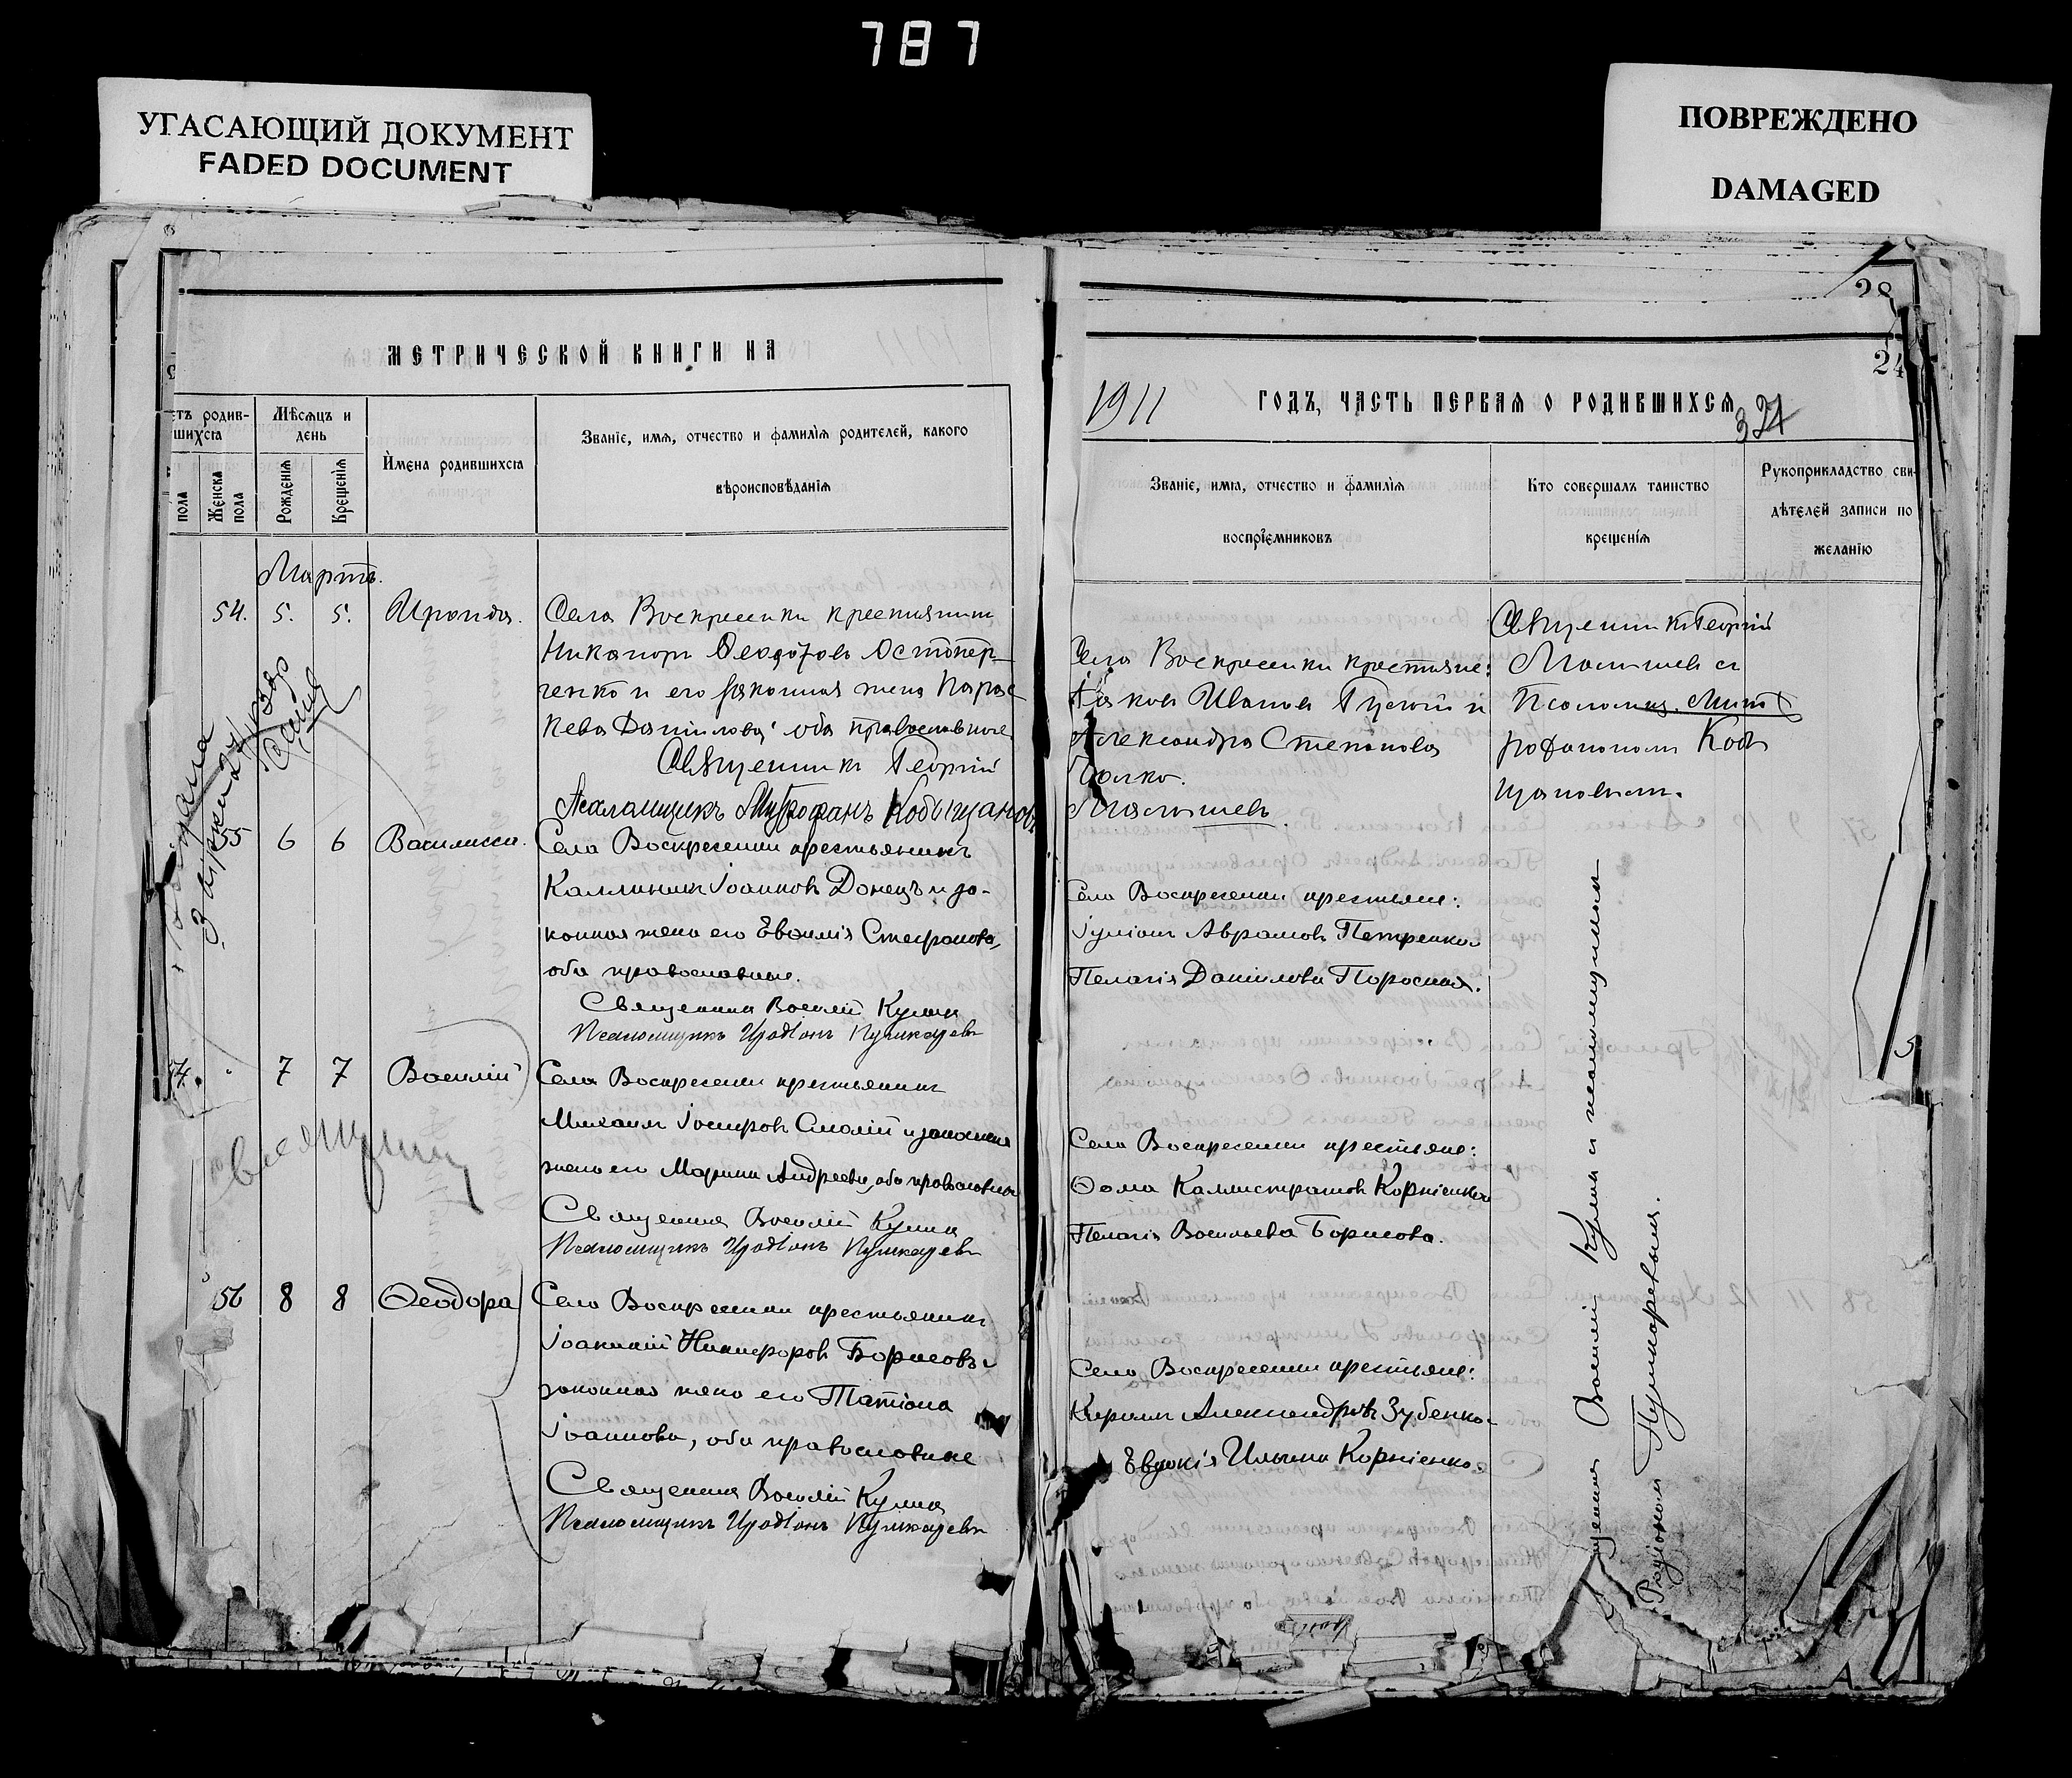 787
УГАСАЮЩИЙ ДОКУМЕНТ
FADED DOCUMENT
ПОВРЕЖДЕНО
DAMAGED
28
24
МЕТРИЧЕСКОЙ КНИГИ НА
1911
ГОДЪ, ЧАСТЬ ПЕРВАЯ О РОДИВШИХСЯ
етъ родив-
шихся
Мѣсяцъ и
день
пола
Женска
пола
Рожденія
Крещенія
Имена родившихся
Званіе, имя, отчество и фамилія родителей, какого
вѣроисповѣданія
Званіе, имя, отчество и фамилія
воспріемниковъ
Кто совершалъ таинство
крещенія
Рукоприкладство сви-
дѣтелей записи по
желанію
Мартъ.
54. 5. 5. Ираида.
Села Воскресенки крестьянинъ
Никаноръ Феодотовъ Остапер-
ченко и его законная жена Парас
кева Данилова; оба православные
Священникъ Георгій
Псаломщикъ Митрофанъ Кобыщановъ
Села Воскресенки крестьяне:
Яковъ Ивановъ Гускій и
Александра Степанова
Священникъ Георгій
съ
Псаломщ. Мит
рофаномъ Кобы
щановымъ.
55 6 6 Василисса.
Села Воскресенки крестьянинъ
Каллиникъ Іоанновъ Донецъ и за-
конная жена его Евѳимія Стефанова,
оба православные.
Священникъ Василій Кулиш
Псаломщикъ Иродіонъ Пушкаревъ
Села Воскресенки крестьяне:
Іуліанъ Аврамовъ Петренко и
Пелагія Данилова
7 7 Василій
Села Воскресенки крестьянинъ
Михаилъ Іосифовъ Смолій и законная
жена его Марина Андреева, оба православные
Священникъ Василій
Псаломщикъ Иродіонъ Пушкаревъ
Села Воскресенки крестьяне:
Ѳома Каллистратовъ Корніенко и
Пелагія Васильева Борисова.
56 8 8 Ѳеодора
Села Воскресенки крестьянинъ
Іоанникій Никифоровъ Борисовъ и
законная жена его Татіана
Іоаннова, оба православные
Священникъ Василій
Псаломщикъ Иродіонъ Пушкаревъ
Села Воскресенки крестьяне:
Кириллъ Александровъ Зубенко и
Евдокія Ильина Корніенко.
Василій съ псаломщикомъ
Родіономъ Пушкаревымъ.